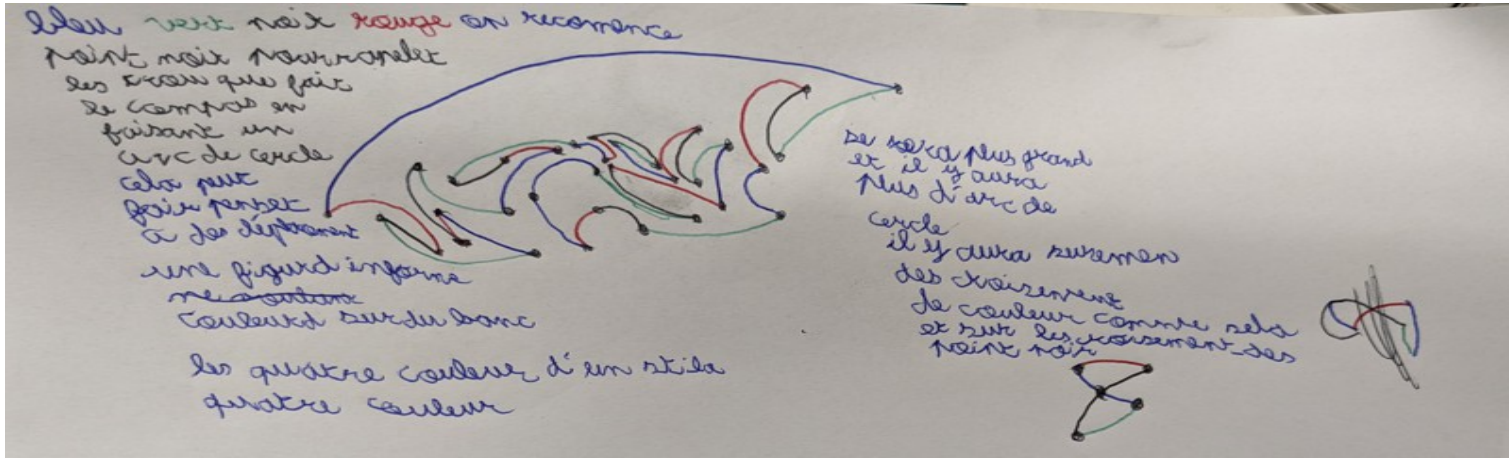 bleu vert noir rouge on recomence
point noir pour rapeler
les trou que fait
le compas en
faisant un
arc de cercle
cela put
fair penser
a des
une figurd informe
couleurd sur du banc
les quatre couleur d'un stilo
quatre couleur
se sera plus grand
et il y aura
plus d'arc de
cercle
il y aura suremen
des croisement
de couleur comme sela
et sur les croisement des
point noir